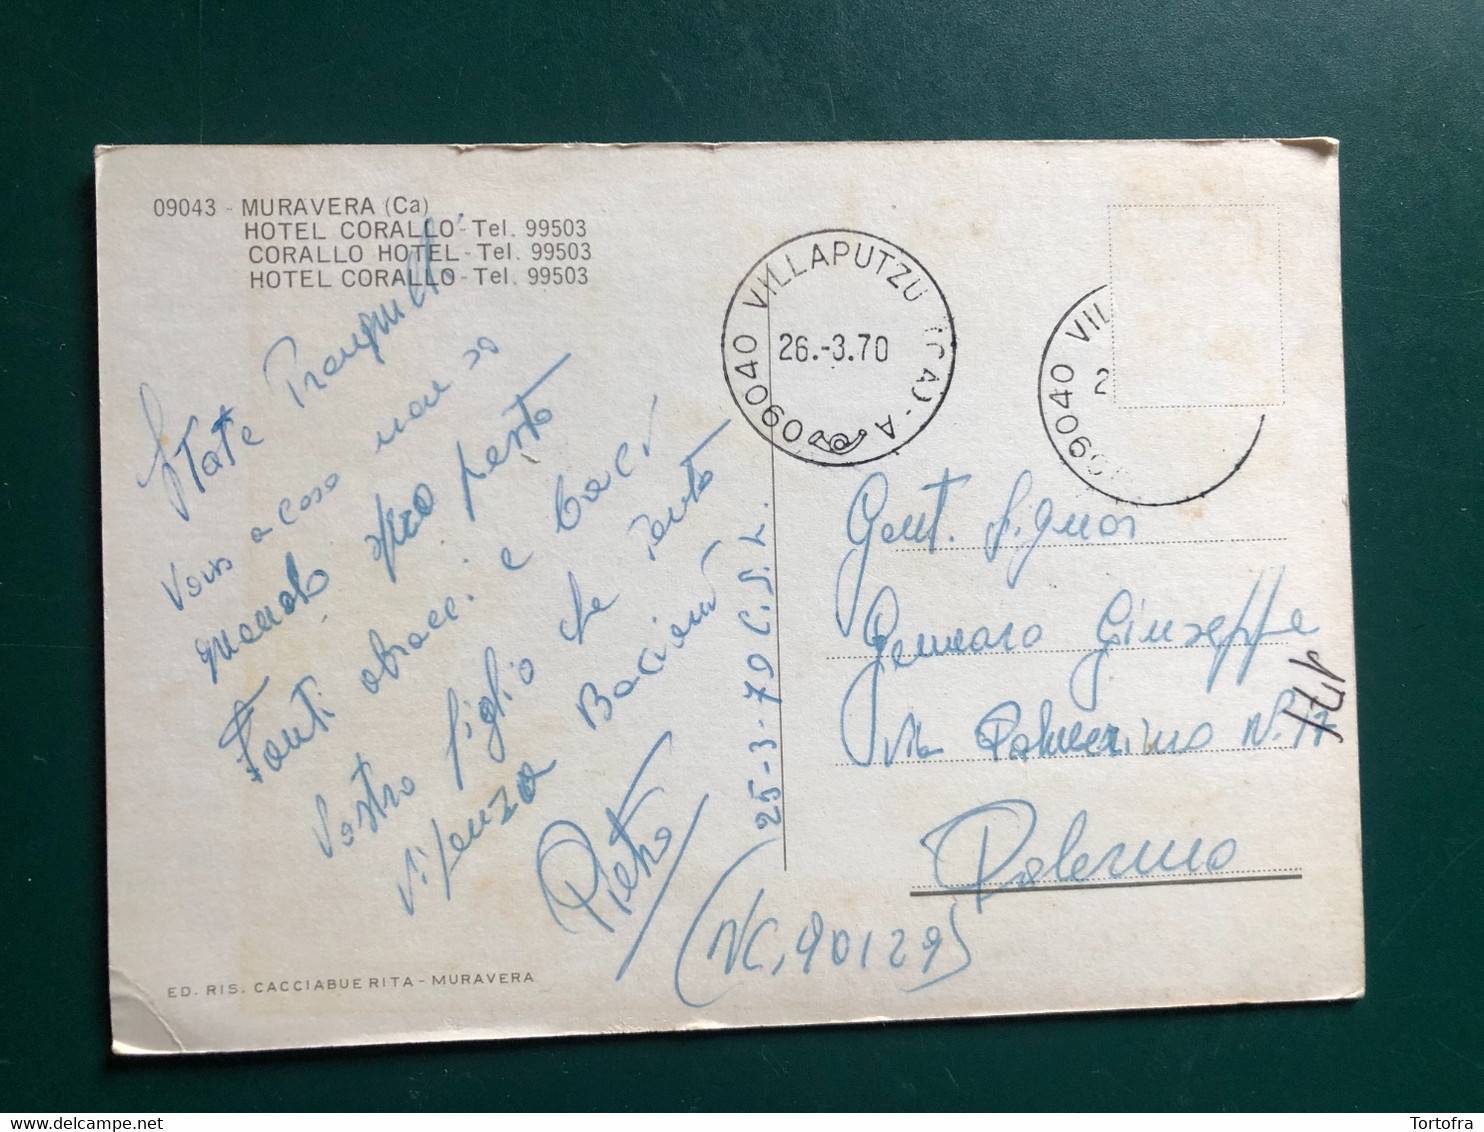 09043 - MURAVERA (Ca)
HOTEL CORALLO - Tel. 99503
CORALLO HOTEL - Tel. 99503
HOTEL CORALLO - Tel. 99503
State Tranquilli
a casa non so
quando spero presto
Tanti abracci e baci
Vostro figlio che tanto
Pietro
25-3-70 C.S.L.
(NC, 90129)
ED. RIS. CACCIABUE RITA - MURAVERA
09040 VILLAPUTZU (CA) - A
26.-3.70
09040 VIL
2
Gent. Signor
Gennaro Giuseppe
Via Palmerino N. 17
Palermo
Tortofra